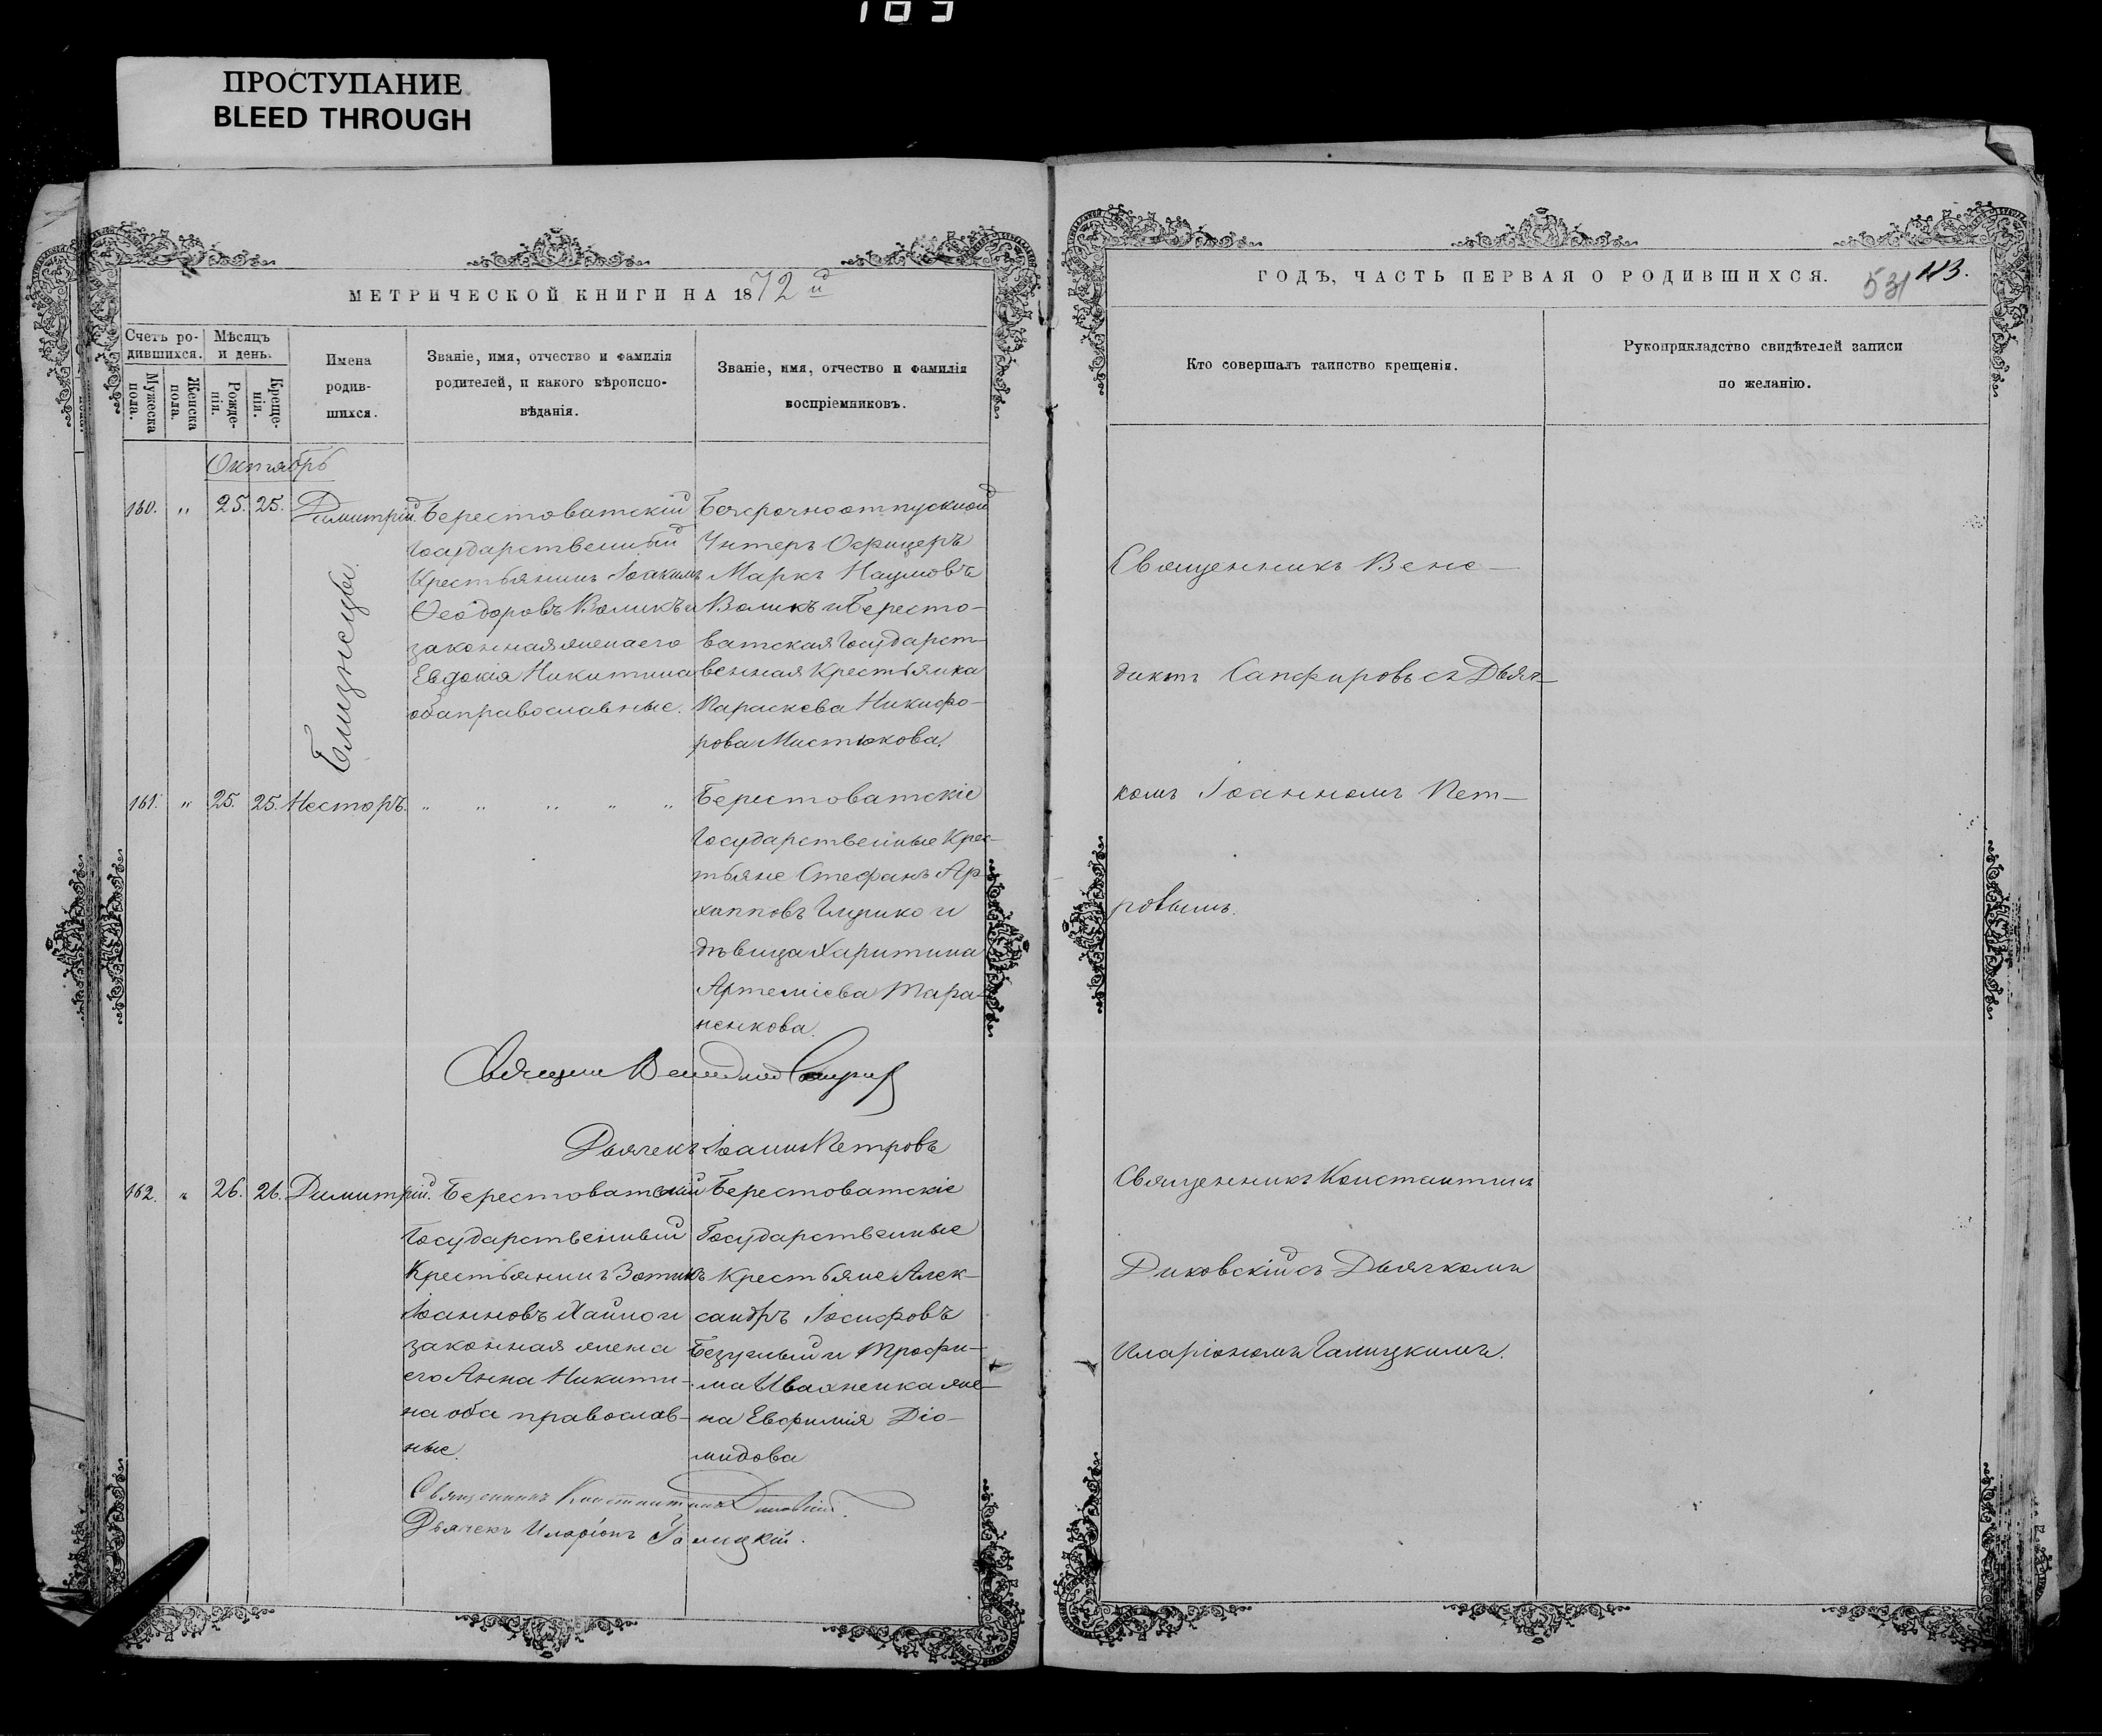 185
ПРОСТУПАНИЕ
BLEED THROUGH
МЕТРИЧЕСКОЙ КНИГИ НА 1872й
Счетъ ро-
дившихся.
Мѣсяцъ
и день.
Мужеска
пола.
Женска
пола.
Рожде-
нія.
Креще-
нія.
Имена
родив-
шихся.
Званіе, имя, отчество и фамилія
родителей, и какого вѣроиспо-
вѣданія.
Званіе, имя, отчество и фамилія
воспріемниковъ.
Октябрь
160. " 25. 25. Димитрій.
Близнецы.
Берестоватскій
Государственный
Крестьянинъ Іоакимъ
Ѳеодоровъ Воликъ и
законная жена его
Евдокія Никитина
оба православные.
Безсрочноотпускной
Унтеръ Офицеръ
Маркъ Наумовъ
Воликъ и Бересто-
ватская Государст-
венная Крестьянка
Параскева Никифо-
рова Мистюкова.
161. " 25. 25. Несторъ. " " " " "
Берестоватскіе
Государственные Крес-
тьяне Стефанъ Ар-
хипповъ и
дѣвица Харитина
Артеміева Тара-
ненкова.
Дьячекъ Іоаннъ Петровъ
162. " 26. 26. Димитрій.
Берестоватскій
Государственный
Крестьянинъ Зотикъ
Іоанновъ Хайло и
законная жена
его Анна Никити-
на оба православ-
ные.
Берестоватскіе
Государственные
Крестьяне Алек-
сандръ Іосифовъ
Безуглый и Трофи-
ма Ивахненка же-
на Евфимія Діо-
мидова
Священникъ Константинъ Диковскій.
Дьячекъ Иларіонъ Галицкій.
ГОДЪ, ЧАСТЬ ПЕРВАЯ О РОДИВШИХСЯ.
531 113.
Кто совершалъ таинство крещенія.
Рукоприкладство свидѣтелей записи
по желанію.
Священникъ Вене-
диктъ Сапфировъ съ Дьяч-
комъ Іоанномъ Пет-
ровымъ.
Священникъ Константинъ
Диковскій съ Дьячкомъ
Иларіономъ Галицкимъ.